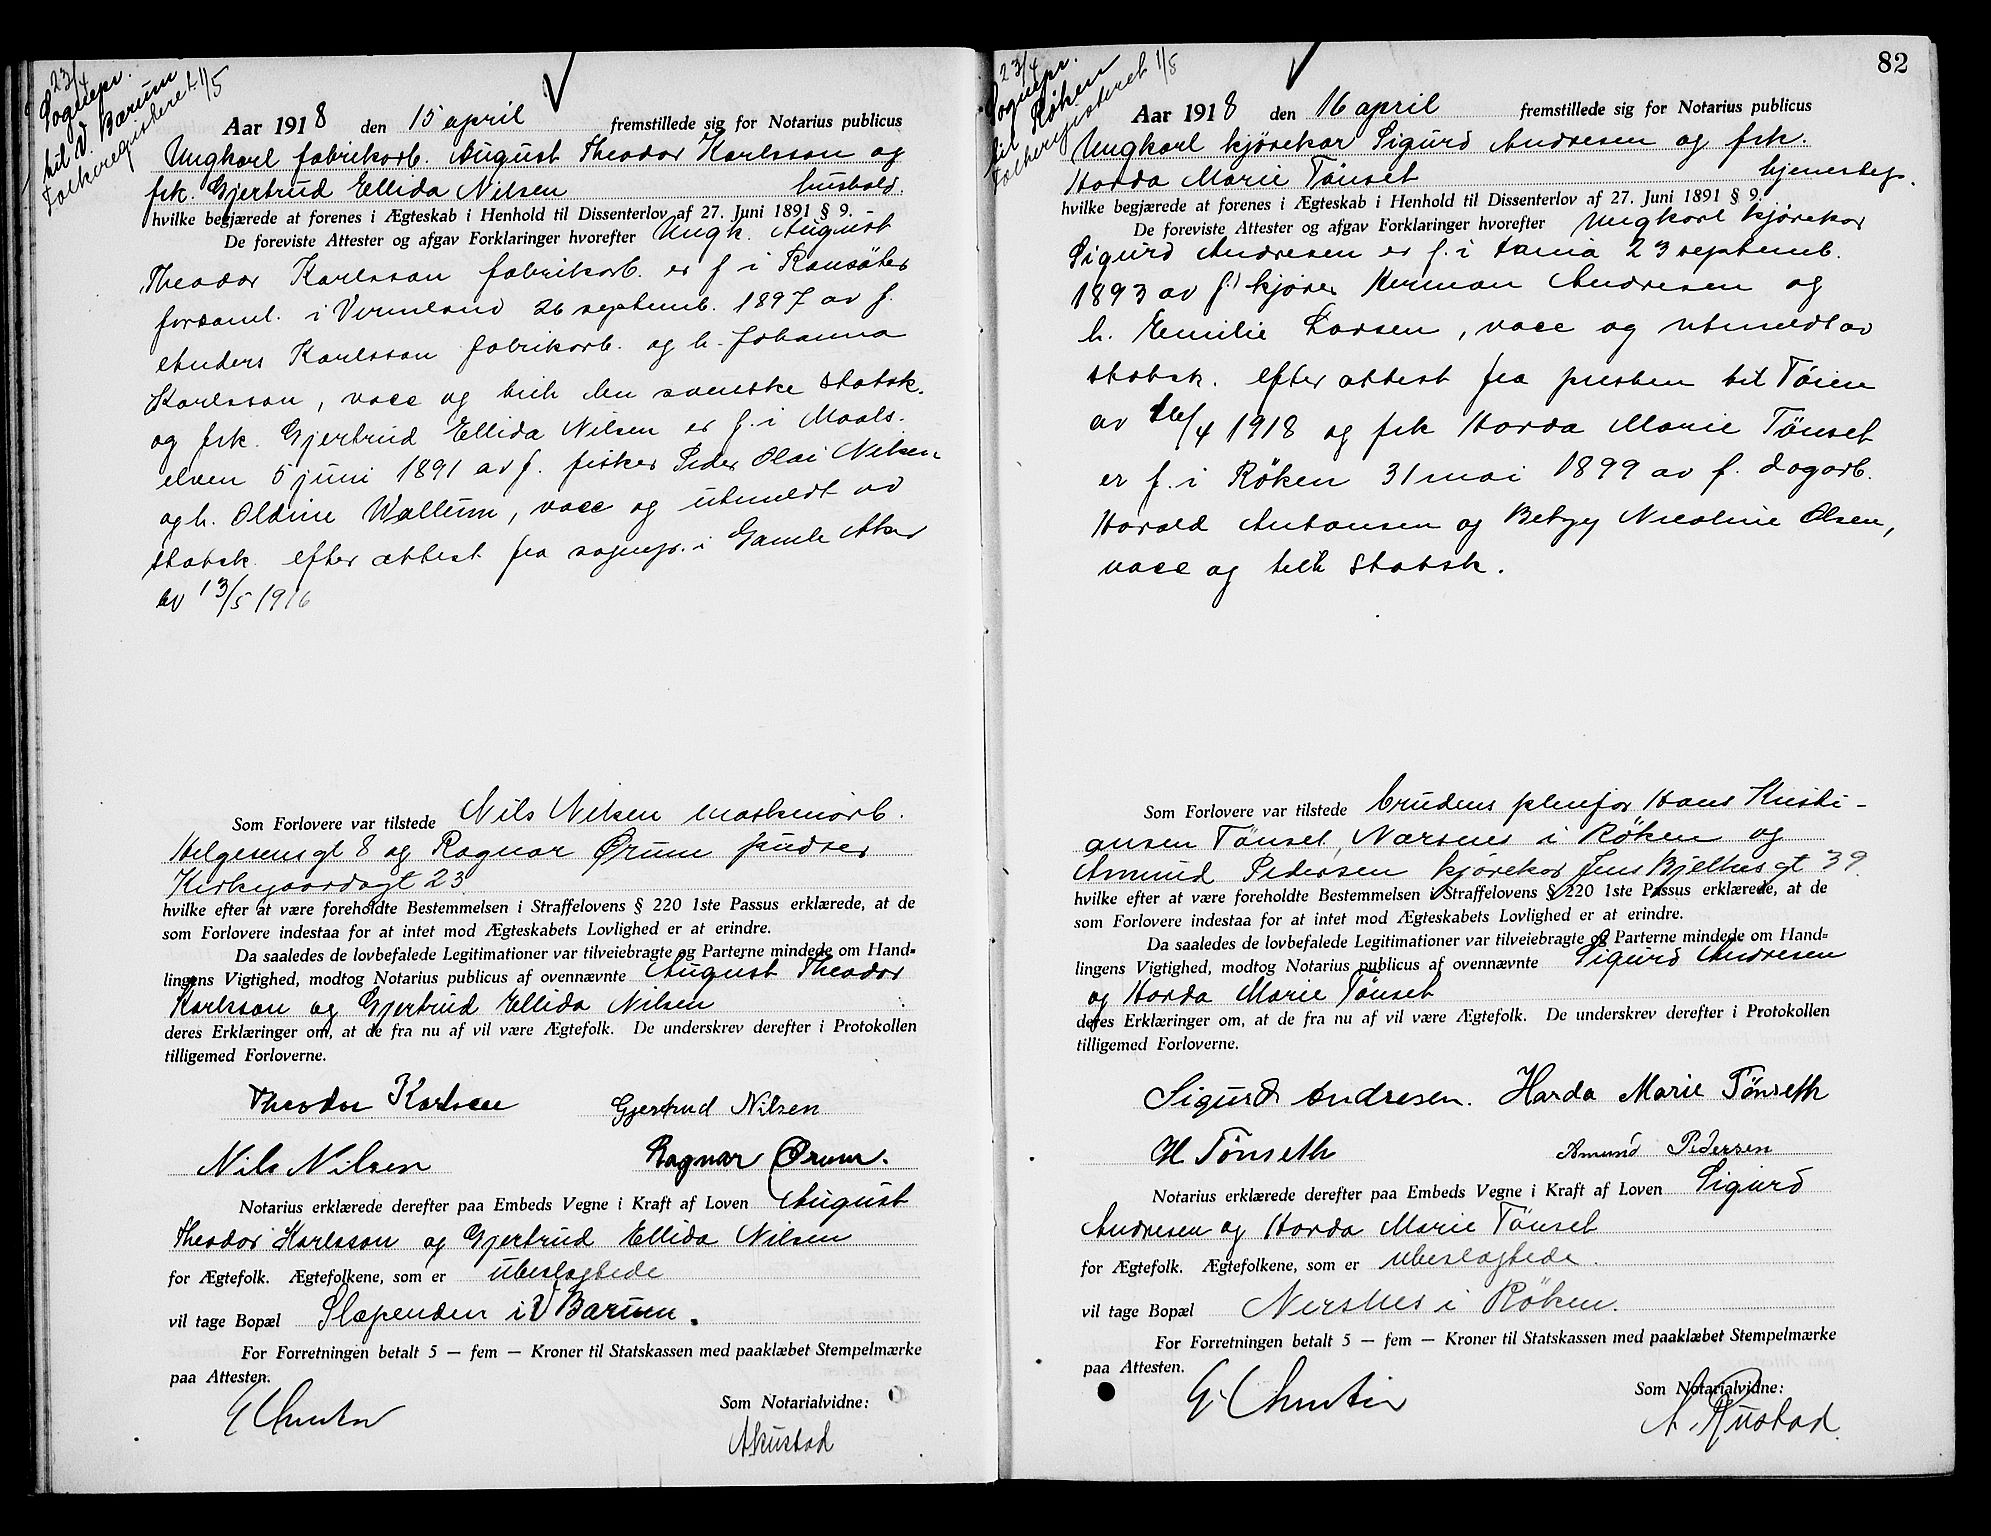 23/4
Sognepr.
til V. Bærum
Folkeregisteret 1/5
Aar 1918 den 15 april fremstillede sig for Notarius publicus
Ungkarl fabrikarb. August Theodor Karlsson og
frk. Gjertrud Ellida Nilsen hushold.
hvilke begjærede at forenes i Ægteskab i Henhold til Dissenterlov af 27. Juni 1891 § 9.
De foreviste Attester og afgav Forklaringer hvorefter Ungk. August
Theodor Karlsson fabrikarb. er f. i Ransäter
forsaml. i Vermland 26 septemb. 1897 av f.
Anders Karlsson fabrikarb. og h. Johanna
Karlsson, vacc og tilh den svenske statsk.
og frk. Gjertrud Ellida Nilsen er f. i Maals-
elven 5 juni 1891 av f. fisker Peder Olai Nilsen
og h. Oldine Wallum, vacc og utmeldt av
statsk. efter attest fra sognepr. i Gamle Aker
av 13/5 1916
Som Forlovere var tilstede Nils Nilsen maskinarb.
Helgesensgt 8 og Ragnar Ørum pudser
Kirkegaardsgt 23
hvilke efter at være foreholdte Bestemmelsen i Straffelovens § 220 1ste Passus erklærede, at de
som Forlovere indestaa for at intet mod Ægteskabets Lovlighed er at erindre.
Da saaledes de lovbefalede Legitimationer var tilveiebragte og Parterne mindede om Hand-
lingens Vigtighed, modtog Notarius publicus af ovennævnte August Theodor
Karlsson og Gjertrud Ellida Nilsen
deres Erklæringer om, at de fra nu af vil være Ægtefolk. De underskrev derefter i Protokollen
tilligemed Forloverne.
Theodor Karlsen Gjertrud Nilsen
Nils Nilsen Ragnar Ørum.
Notarius erklærede derefter paa Embeds Vegne i Kraft af Loven August
Theodor Karlsson og Gjertrud Ellida Nilsen
for Ægtefolk. Ægtefolkene, som er ubeslagtede
vil tage Bopæl Slependen i V Bærum.
For Forretningen betalt 5 — fem — Kroner til Statskassen med paaklæbet Stempelmærke
paa Attesten.
Som Notarialvidne:
A Rustad
82
23/4
Sognepr.
til Røken
Folkeregisteret 1/5
Aar 1918 den 16 april fremstillede sig for Notarius publicus
Ungkarl kjørekar Sigurd Andresen og frk.
Harda Marie Tönset tjenestep.
hvilke begjærede at forenes i Ægteskab i Henhold til Dissenterlov af 27. Juni 1891 § 9.
De foreviste Attester og afgav Forklaringer hvorefter Ungkarl kjørekar
Sigurd Andresen er f. i 23 septemb.
1893 av f. kjører Herman Andresen og
h. Emilie Larsen, vacc og utmeldt av
statsk. efter attest fra presten til Töien
av 16/4 1918 og frk Harda Marie Tönset
er f. i Röken 31 mai 1899 av f. dagarb.
Harald Antonsen og Betzy Nicoline Olsen,
vacc og tilh statsk.
Som Forlovere var tilstede brudens pleiefar Hans Kristi-
ansen Tönset, Nærsnes i Röken og
Amund Pedersen kjørekar Jens Bjelkes gt 39
hvilke efter at være foreholdte Bestemmelsen i Straffelovens § 220 1ste Passus erklærede, at de
som Forlovere indestaa for at intet mod Ægteskabets Lovlighed er at erindre.
Da saaledes de lovbefalede Legitimationer var tilveiebragte og Parterne mindede om Hand-
lingens Vigtighed, modtog Notarius publicus af ovennævnte Sigurd Andresen
og Harda Marie Tönset
deres Erklæringer om, at de fra nu af vil være Ægtefolk. De underskrev derefter i Protokollen
tilligemed Forloverne.
Sigurd Andresen. Harda Marie Tönseth
H Tönseth Amund Pedersen
Notarius erklærede derefter paa Embeds Vegne i Kraft af Loven Sigurd
Andresen og Harda Marie Tönset
for Ægtefolk. Ægtefolkene, som er ubeslagtede.
vil tage Bopæl Nersnes i Röken.
For Forretningen betalt 5 — fem — Kroner til Statskassen med paaklæbet Stempelmærke
paa Attesten.
Som Notarialvidne:
A. Rustad